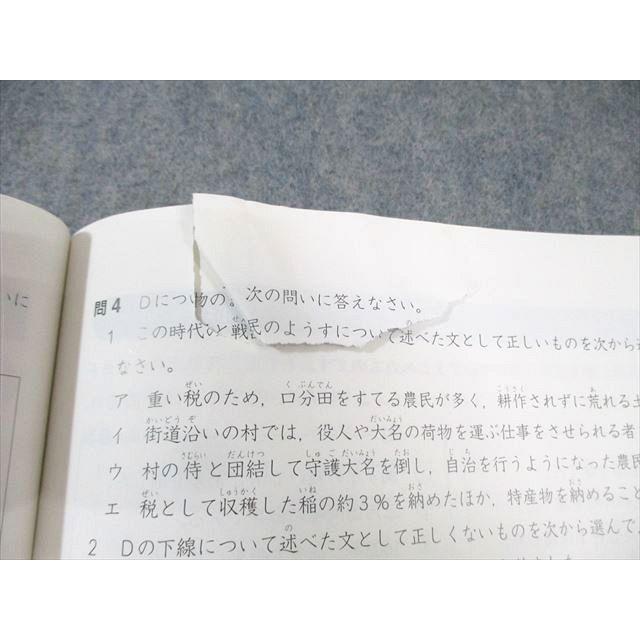 いに
問4 Dにつ物の。次の問いに答えなさい。
1 この時代いと戦民のようすについて述べた文として正しいものを次から
なさい。
ア 重い税のため，口分田をすてる農民が多く，耕作されずに荒れる土
イ 街道沿いの村では，役人や大名の荷物を運ぶ仕事をさせられる者
ウ 村の侍と団結して守護大名を倒し，自治を行うようになった農民
エ 税として収穫した稲の約3％を納めたほか，特産物を納めること
2 Dの下線について述べた文として正しくないものを次から選んで，